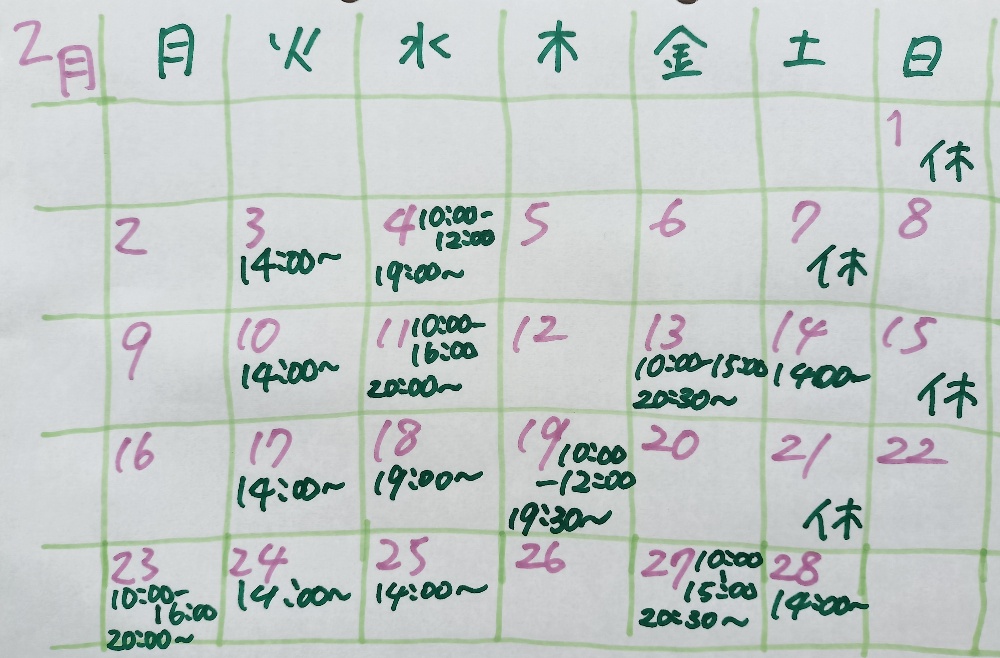 2月 月 火 水 木 金 土 日
1 休
2
3 14:00~
4 10:00-
12:00
19:00~
5
6
7 休
8
9
10 14:00~
11 10:00-
16:00
20:00~
12
13
10:00-15:00
20:30~
14
14:00~
15 休
16
17
14:00~
18
19:00~
19 10:00
-12:00
19:30~
20
21
休
22
23
10:00-
16:00
20:00~
24
14:00~
25
14:00~
26
27 10:00
15:00
20:30~
28
14:00~